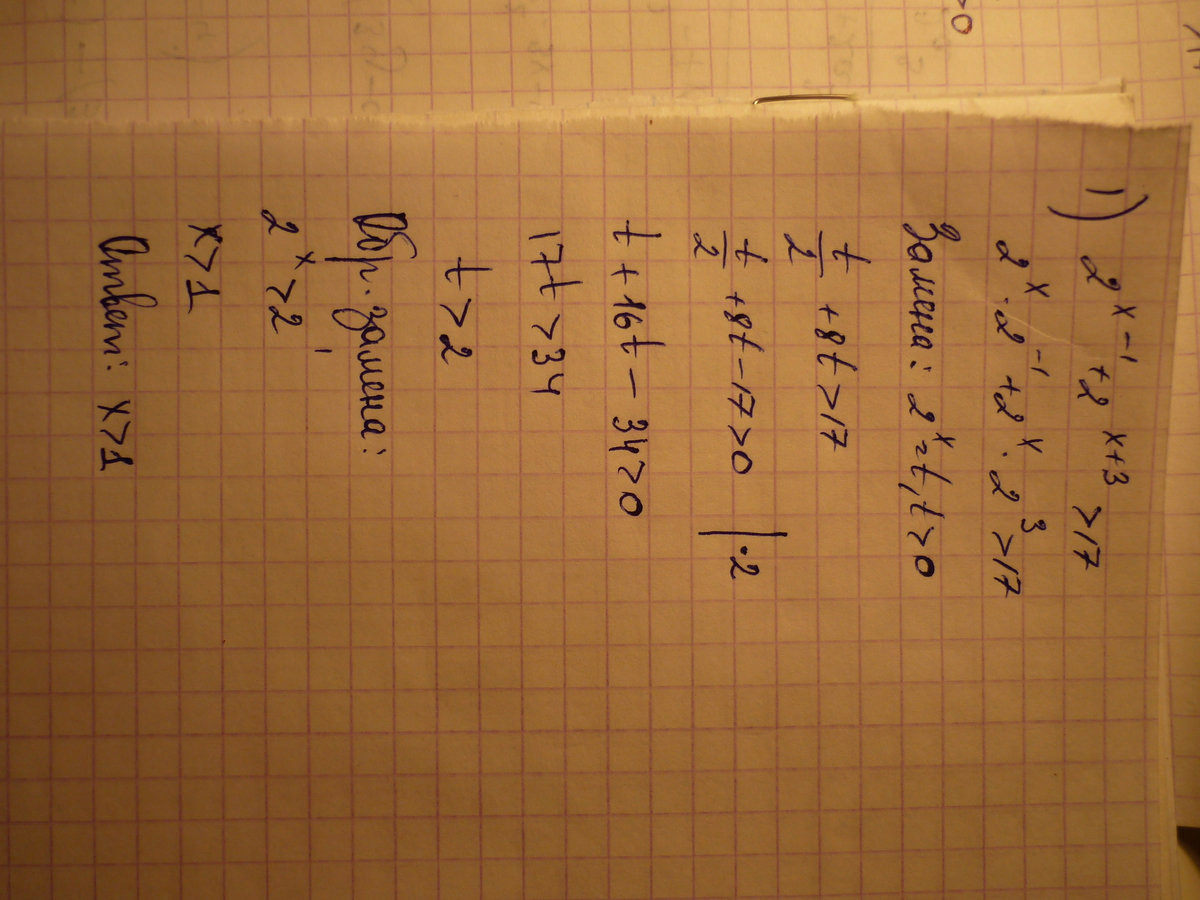 >0
1) 2^(x-1) + 2^(x+3) > 17
2^x · 2^(-1) + 2^x · 2^3 > 17
Замена: 2^x = t, t > 0
t/2 + 8t > 17
t/2 + 8t - 17 > 0 | · 2
t + 16t - 34 > 0
17t > 34
t > 2
Обр. замена:
2^x > 2^1
x > 1
Ответ: x > 1